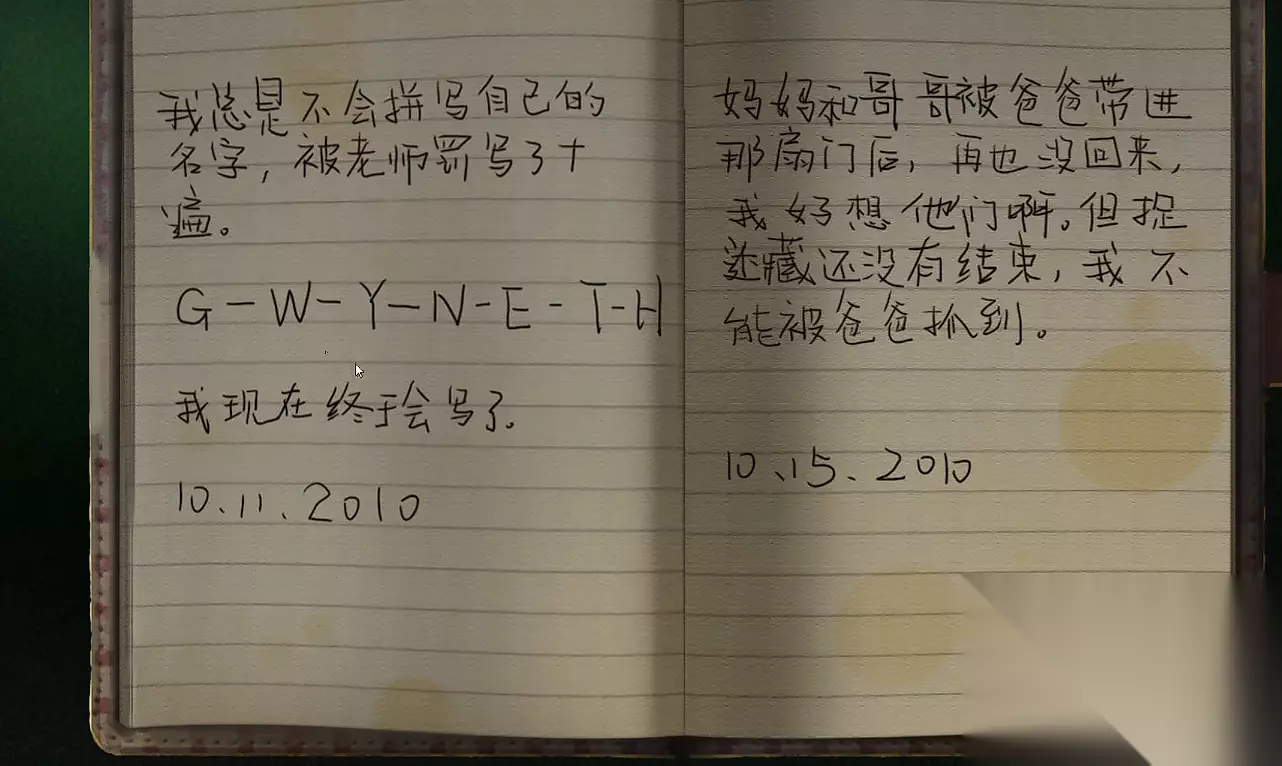 我总是不会拼写自己的
名字，被老师罚写了十
遍。
G-W-Y-N-E-T-H
我现在终于会写了。
10.11.2010
妈妈和哥哥被爸爸带进
那扇门后，再也没回来，
我好想他们啊。但捉
迷藏还没有结束，我不
能被爸爸抓到。
10.15.2010